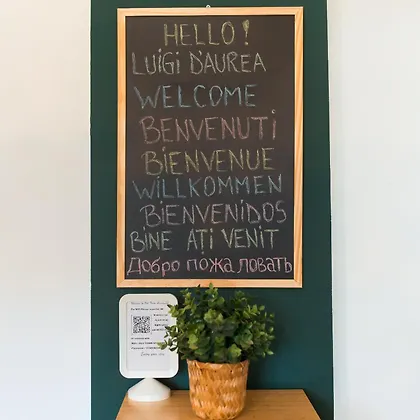 HELLO!
LUIGI D'AUREA
WELCOME
BENVENUTI
BIENVENUE
WILLKOMMEN
BIENVENIDOS
BINE AȚI VENIT
Добро пожаловать